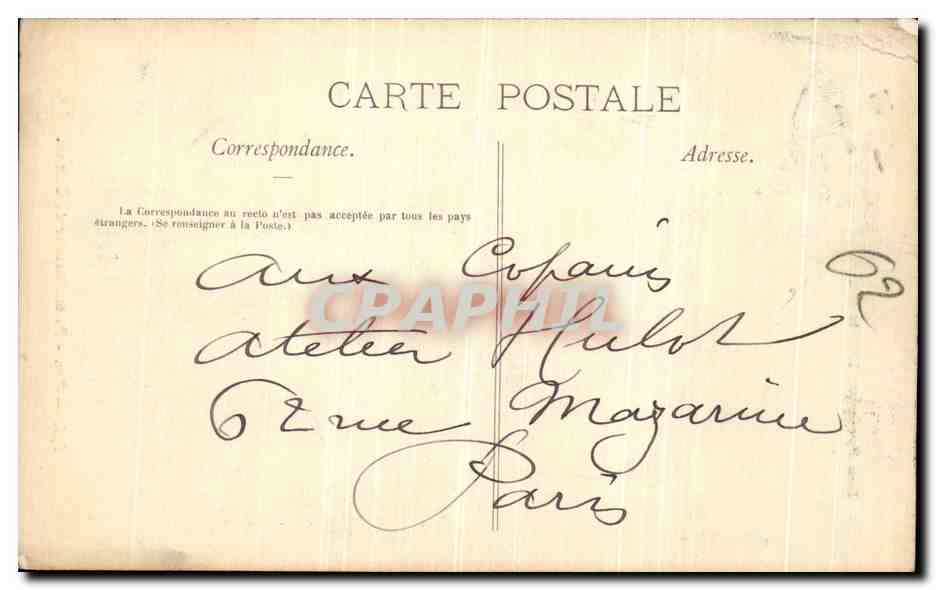 CARTE POSTALE
Correspondance.
Adresse.
La Correspondance au recto n'est pas acceptée par tous les pays
étrangers. (Se renseigner à la Poste.)
aux Copains
62
CPAPHIL
atelier Hulot
62 rue Mazarine
Paris